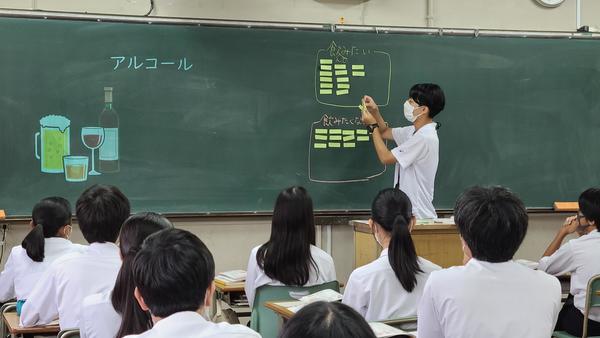 アルコール
飲みたい
飲みたくな